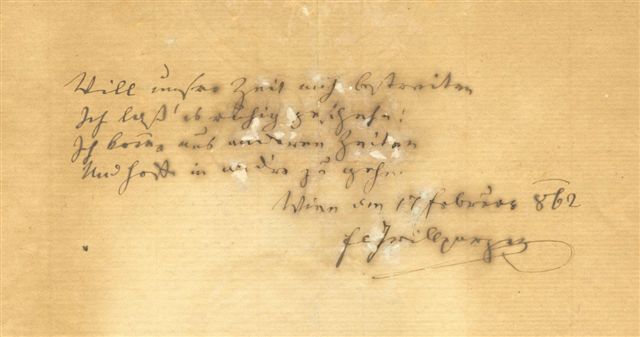 Will unsre Zeit mich bestreiten
Ich laß' es ruhig geschehn!
Ich komme aus anderen Zeiten
Und hoffe in andre zu gehn.
Wien am 17 Februar 862
Fr Grillparzer